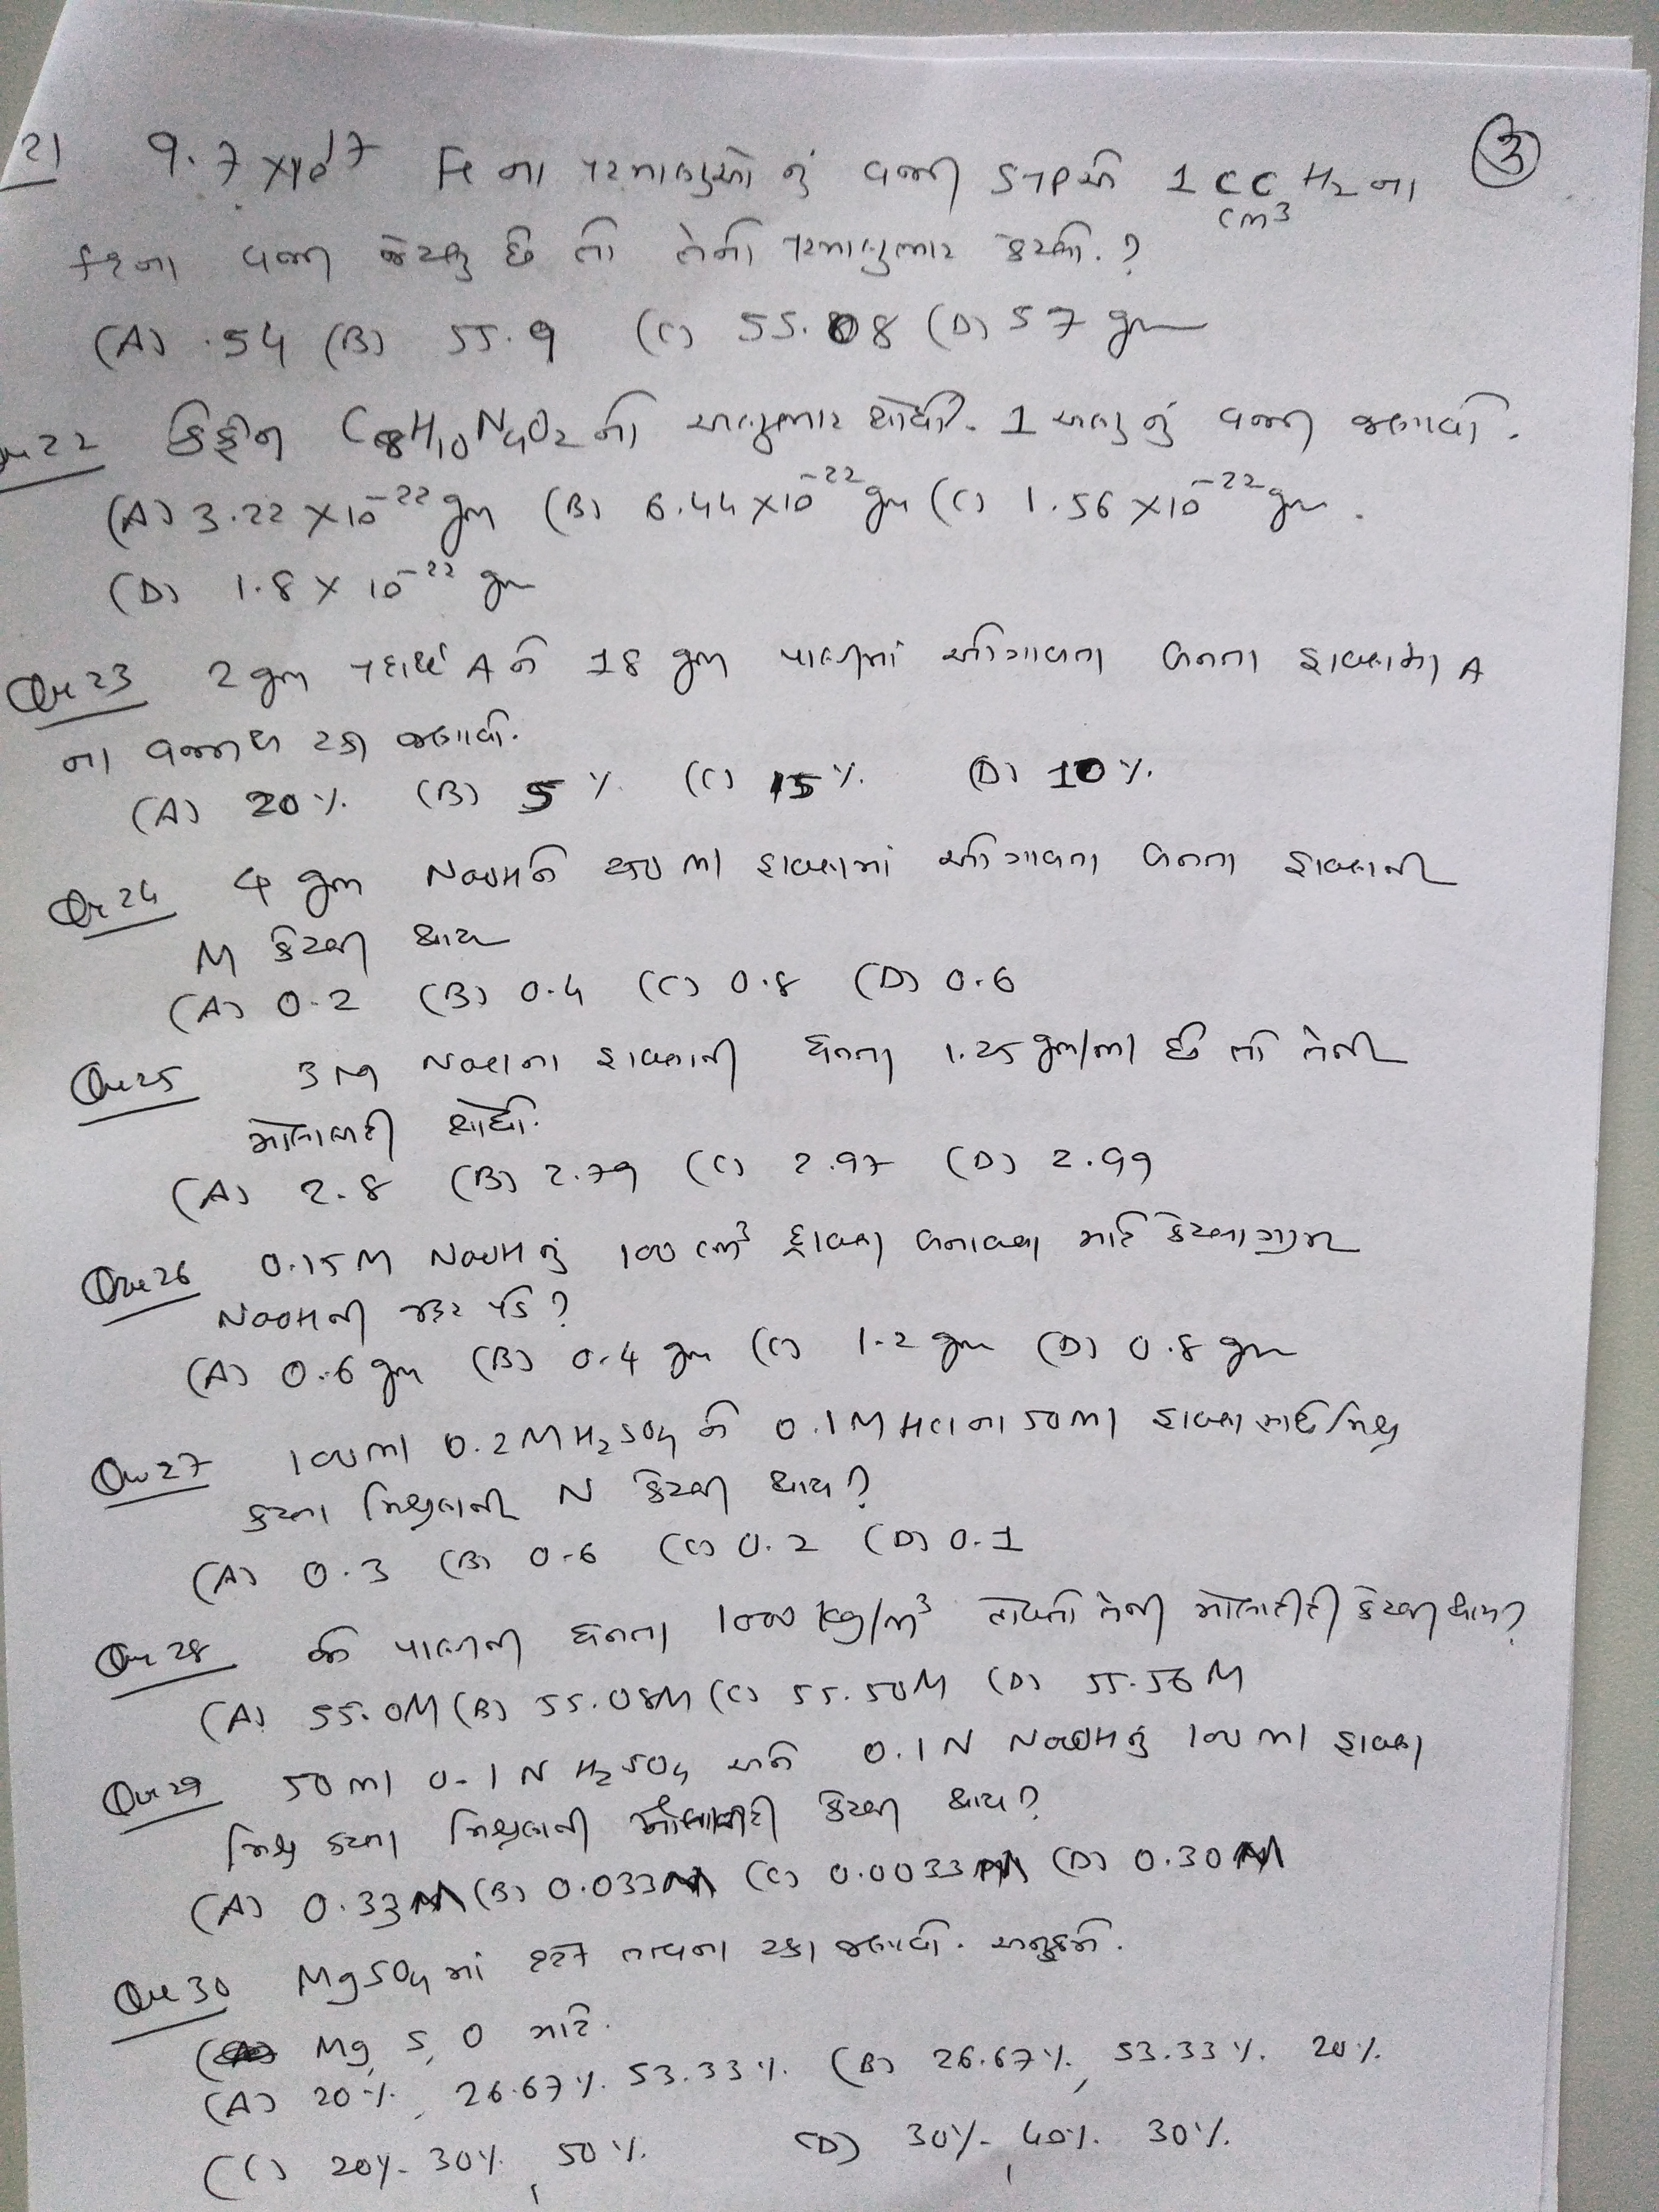 ③
21 9.7 x10^17 Fe ના પરમાણુઓ નું વજન STPએ 1 CC H2 ના
cm3
કદના વજન જેટલુ છે તો તેનો પરમાણુભાર કેટલો.?
(A) .54 (B) 55.9 (C) 55.08 (D) 57 gm
Que 22 કેફીન C8H10N4O2 નો અણુભાર શોધો. 1 અણુ નું વજન જણાવો.
(A) 3.22 x10^-22 gm (B) 6.44 x10^-22 gm (C) 1.56 x10^-22 gm.
(D) 1.8 x 10^-22 gm
Que 23 2 gm પદાર્થ A ને 18 gm પાણીમાં ઓગાળતા બનતા દ્રાવણમાં A
ના વજનથી ટકા જણાવો.
(A) 20 %. (B) 5 % (C) 15 %. (D) 10 %.
Que 24 4 gm NaOHને 250 ml દ્રાવણમાં ઓગાળતા બનતા દ્રાવણની
M કેટલી થાય
(A) 0.2 (B) 0.4 (C) 0.8 (D) 0.6
Que 25 3 M NaClના દ્રાવણની ઘનતા 1.25 gm/ml છે તો તેની
મોલાલીટી શોધો.
(A) 2.8 (B) 2.79 (C) 2.97 (D) 2.99
Que 26 0.15 M NaOH નું 100 cm^3 દ્રાવણ બનાવવા માટે કેટલા ગ્રામ
NaOHની જરૂર પડે ?
(A) 0.6 gm (B) 0.4 gm (C) 1.2 gm (D) 0.8 gm
Que 27 100 ml 0.2 M H2SO4 ને 0.1 M HCl ના 50 ml દ્રાવણ સાથે મિશ્ર
કરતા મિશ્રણની N કેટલી થાય ?
(A) 0.3 (B) 0.6 (C) 0.2 (D) 0.1
Que 28 જો પાણીની ઘનતા 1000 kg/m^3 હોયતો તેની મોલારીટી કેટલી થાય ?
(A) 55.0M (B) 55.08M (C) 55.50M (D) 55.56 M
Que 29 50 ml 0.1 N H2SO4 અને 0.1 N NaOH નું 100 ml દ્રાવણ
મિશ્ર કરતા મિશ્રણની કેટલી થાય ?
(A) 0.33 (B) 0.033 (C) 0.0033 (D) 0.30
Que 30 MgSO4 માં દરેક તત્વના ટકા જણાવો. અનુક્રમે.
Mg, S, O માટે.
(A) 20 %, 26.67 %. 53.33 %. (B) 26.67 %, 53.33 %. 20 %.
(C) 20%. 30%, 50 %. (D) 30%. 40%. 30%.